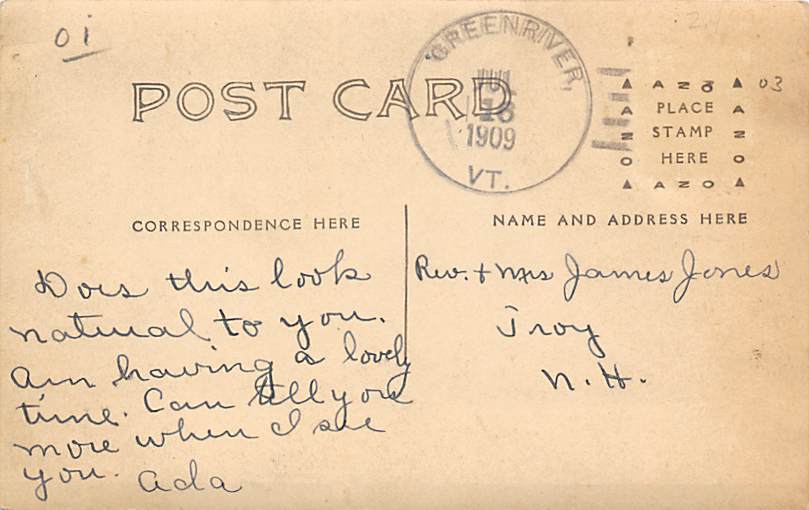 01
POST CARD
GREENRIVER,
16
1909
VT.
03
AZO
PLACE
STAMP
HERE
AZO
CORRESPONDENCE HERE
NAME AND ADDRESS HERE
Does this look
natural to you.
Am having a lovely
time. Can tell you
more when I see
you. Ada
Rev. + Mrs James Jones
Troy
N. H.